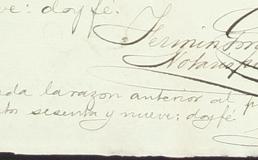 ve: doyfé.
Fermin Gon
Notario p
eda la razon anterior al p
to sesenta y nueve: doyfé